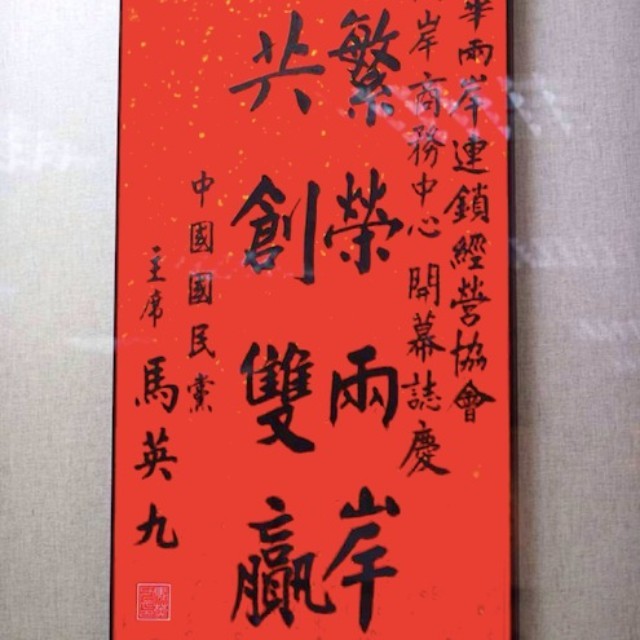 華兩岸連鎖經營協會
岸商務中心開幕誌慶
繁榮兩岸
共創雙贏
中國國民黨
主席馬英九